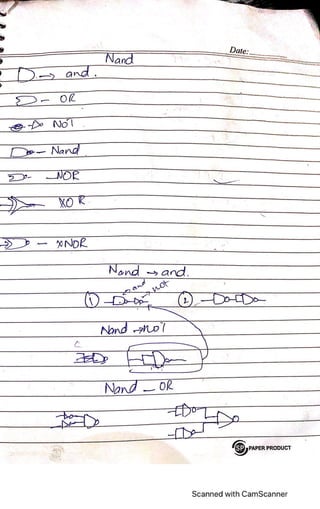 Date:
Nand
→ and.
- OR
Not
- Nand
- NOR
XOR
- XNOR
Nand → and.
and not
① ②
Nand → not
Nand - OR
PAPER PRODUCT
Scanned with CamScanner